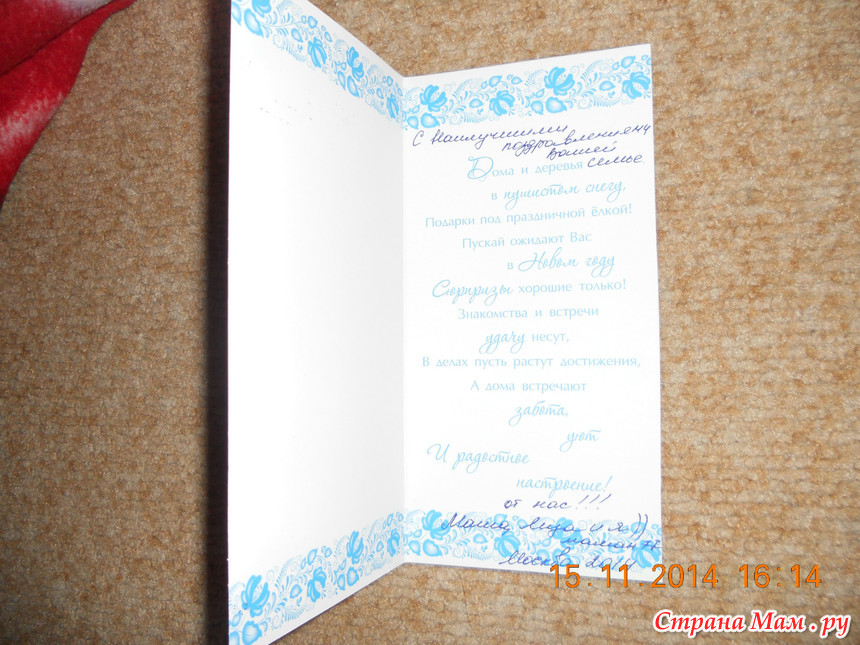 С Наилучшими
поздравлениями
Вашей
семье
Дома и деревья
в пушистом снегу,
Подарки под праздничной ёлкой!
Пускай ожидают Вас
в Новом году
Сюрпризы хорошие только!
Знакомства и встречи
удачу несут,
В делах пусть растут достижения,
А дома встречают
забота,
уют
И радостное
настроение!
от нас!!!
Маша, и я))
Москва 2014
15.11.2014 16:14
Страна Мам.ру